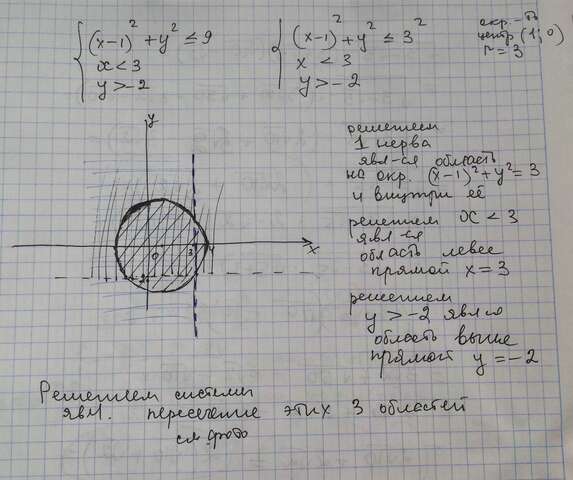 (x-1)² + y² ≤ 9
x < 3
y > -2
(x-1)² + y² ≤ 3²
x < 3
y > -2
окр.-ть
центр (1; 0)
r = 3
y
x
0
3
-2
решением
1 нерва
явл-ся область
на окр. (x-1)² + y² = 3
и внутри её
решением x < 3
явл-ся
область левее
прямой x = 3
решением
y > -2 явл-ся
область выше
прямой y = -2
Решением системы
явл. пересечение этих 3 областей
см. фото